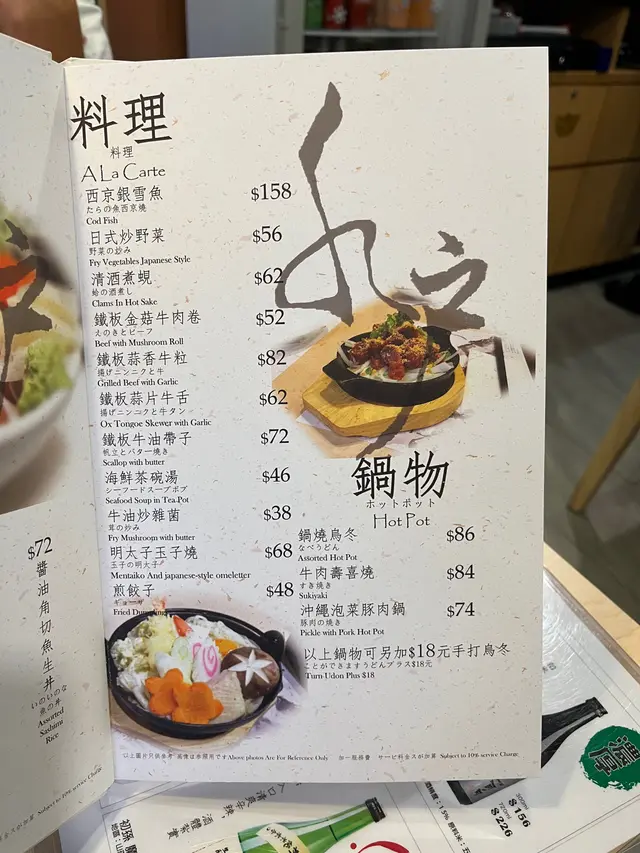 料理
料理
A La Carte
西京銀雪魚 $158
たらの魚西京燒
Cod Fish
日式炒野菜 $56
野菜の炒み
Fry Vegetables Japanese Style
清酒煮蜆 $62
蛤の酒煮し
Clams In Hot Sake
鐵板金菇牛肉卷 $52
えのきとビーフ
Beef with Mushroom Roll
鐵板蒜香牛粒 $82
揚げニンニクと牛
Grilled Beef with Garlic
鐵板蒜片牛舌 $62
揚げニンニクと牛タン
Ox Tongoe Skewer with Garlic
鐵板牛油帶子 $72
帆立とバター燒き
Scallop with butter
海鮮茶碗湯 $46
シーフードスープポブ
Seafood Soup in Tea-Pot
牛油炒雜菌 $38
茸の炒み
Fry Mushroom with butter
明太子玉子燒 $68
玉子の明太子
Mentaiko And japanese-style omeletter
煎餃子 $48
ギョーザ
Fried Dumpling
鍋物
ホットポット
Hot Pot
鍋燒烏冬 $86
なべうどん
Assorted Hot Pot
牛肉壽喜燒 $84
すき燒き
Sukiyaki
沖繩泡菜豚肉鍋 $74
豚肉の燒き
Pickle with Pork Hot Pot
以上鍋物可另加$18元手打烏冬
ことができますうどんプラス$18元
Turn Udon Plus $18
以上圖片只供參考 画像は参照用です Above photos Are For Reference Only 加一服務費 サービ料金スが加算 Subject to 10% service Charge
$72
醬油角切魚生丼
いのいのな
魚の丼
Assorted
Sashimi
Rice
Subject to 10% service Charge
300ml
$156
720ml
$226